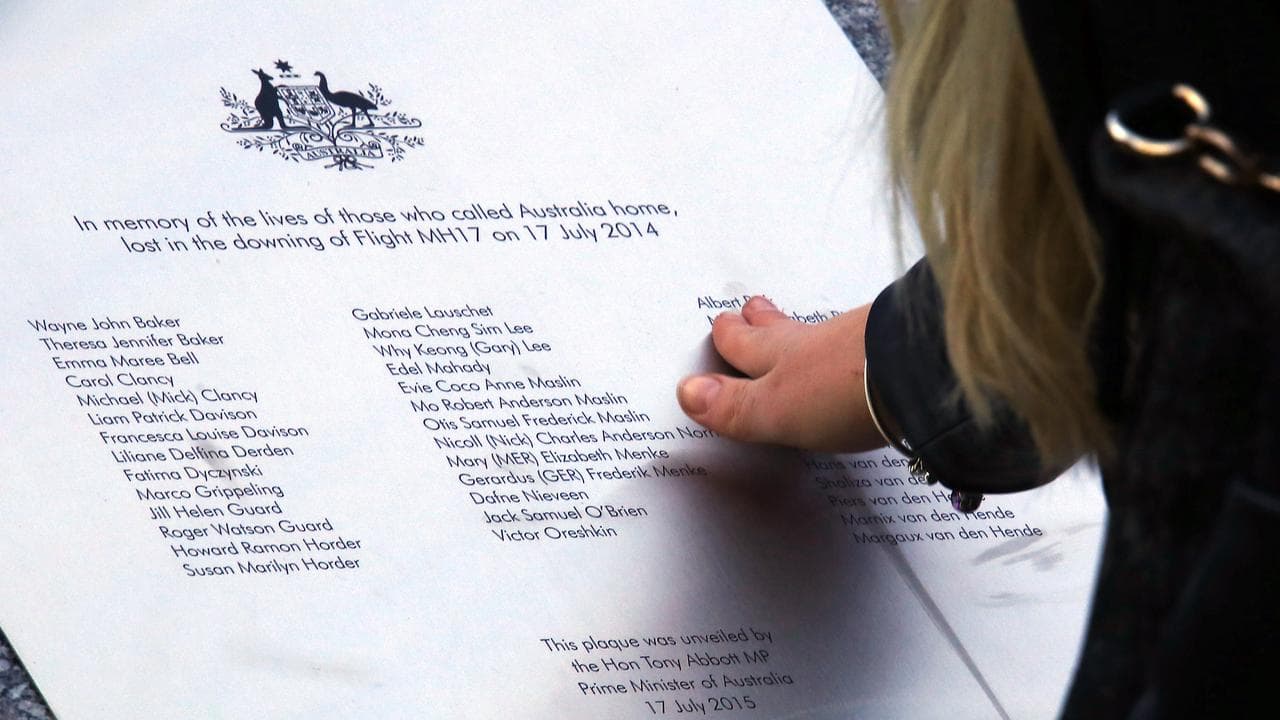 AUSTRALIA
In memory of the lives of those who called Australia home,
lost in the downing of Flight MH17 on 17 July 2014
Wayne John Baker
Theresa Jennifer Baker
Emma Maree Bell
Carol Clancy
Michael (Mick) Clancy
Liam Patrick Davison
Francesca Louise Davison
Liliane Delfina Derden
Fatima Dyczynski
Marco Grippeling
Jill Helen Guard
Roger Watson Guard
Howard Ramon Horder
Susan Marilyn Horder
Gabriele Lauschet
Mona Cheng Sim Lee
Why Keong (Gary) Lee
Edel Mahady
Evie Coco Anne Maslin
Mo Robert Anderson Maslin
Otis Samuel Frederick Maslin
Nicoll (Nick) Charles Anderson
Mary (MER) Elizabeth Menke
Gerardus (GER) Frederik Menke
Dafne Nieveen
Jack Samuel O'Brien
Victor Oreshkin
Albert
van den
Shaliza van
Piers van den
Marnix van den Hende
Margaux van den Hende
This plaque was unveiled by
the Hon Tony Abbott MP
Prime Minister of Australia
17 July 2015